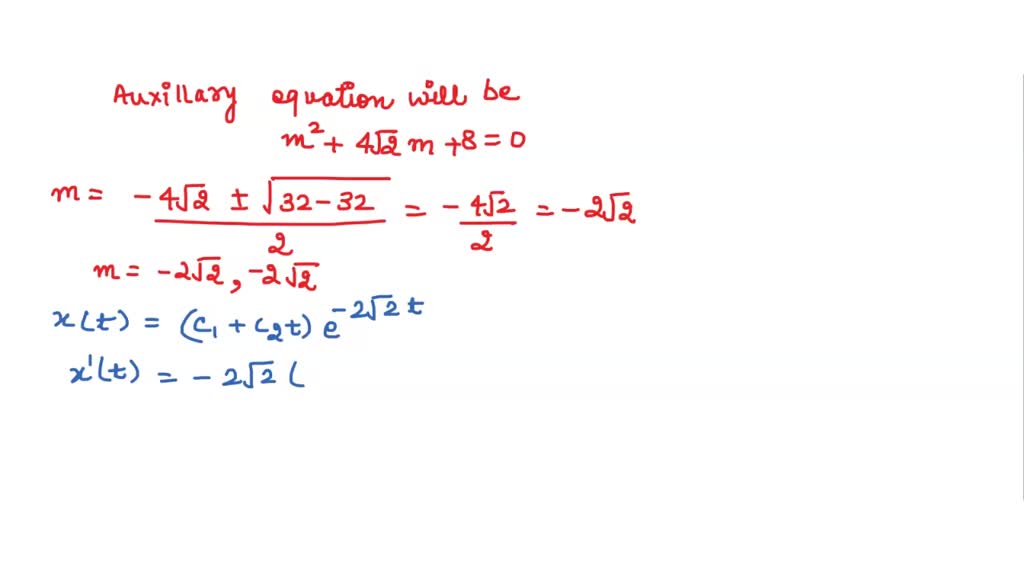 Auxillary equation will be
m² + 4√2 m + 8 = 0
m = (-4√2 ± √(32-32))/2 = -4√2/2 = -2√2
m = -2√2, -2√2
x(t) = (c₁ + c₂t) e^(-2√2 t)
x'(t) = -2√2 (